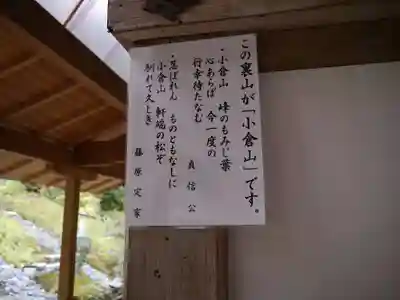 この裏山が「小倉山」です。
・小倉山　峰のもみじ葉
心あらば　今一度の
行幸待たなむ
貞信公
・忍ばれん　ものともなしに
小倉山　軒端の松ぞ
馴れて久しき
藤原定家